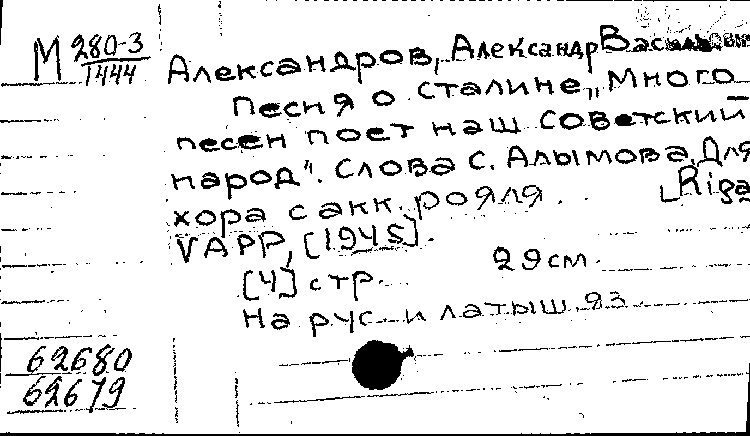 М 280-3
1444
Александров, Александр Васильевич
Песня о Сталине „Много
песен поет наш советский
народ". Слова С. Алымова. Для
хора с акк. рояля. [Riga]
VAPP, [1945].
[4] стр. 29 см.
На рус. и латыш. яз.
62680
62679